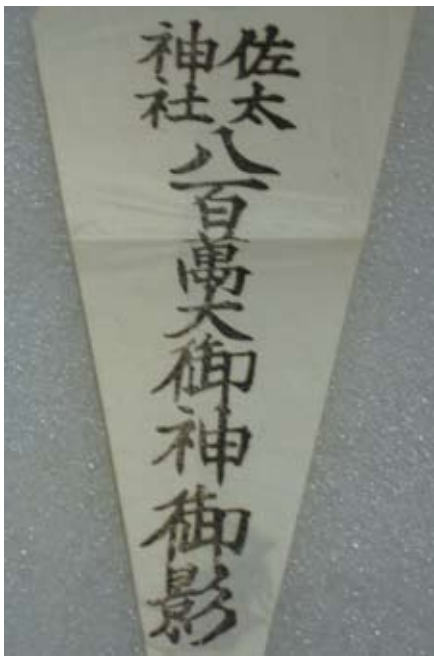 佐太
神社
八百萬大御神御影